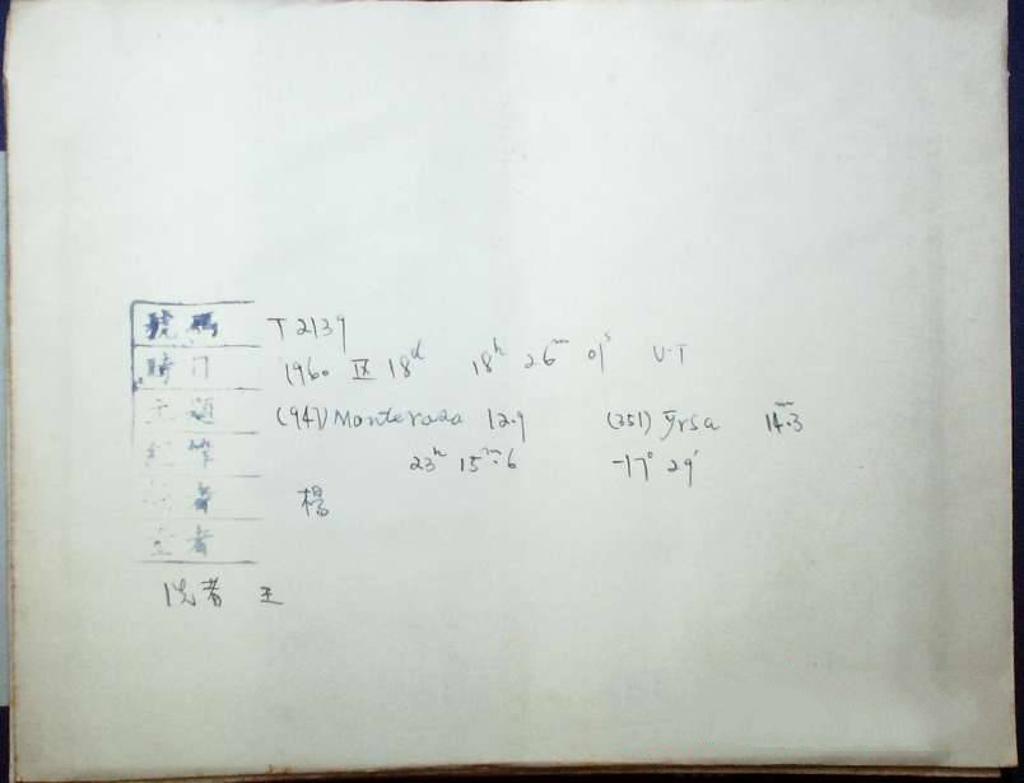 號碼 T2139
時間 1960 Ⅸ 18ᵈ 18ʰ 26ᵐ 01ˢ U·T
主題 (947) Monterosa 12.9 (351) Yrsa 14ᵐ.3
23ʰ 15ᵐ.6 -17° 29'
者 楊
者
洗者 王